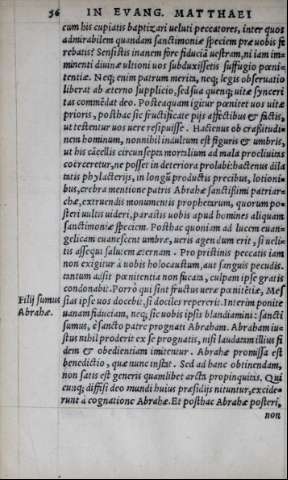 56 IN EVANG. MATTHAEI
cum his cupiatis baptizari ueluti peccatores, inter quos
admirabilem quandam sanctimoniæ speciem præ uobis fe
rebatis? Sensistis inanem fore fiduciā uestram, ni iam im=
minenti diuinæ ultioni uos subduxissetis suffugio pœni=
tentiæ. Neq; enim patrum merita, neq; legis obseruatio
liberat ab æterno supplicio, sed sua quenq; uitæ synceri
tas commēdat deo. Posteaquam igitur pœnitet uos uitæ
prioris, posthac sic fructificate pijs affectibus & factis,
ut testentur uos uere resipuisse. Hactenus ob crassitudi=
nem hominum, nonnihil indultum est figuris & umbris,
ut his cācellis circunsepta mortalium ad mala procliuitas
coërceretur, ne posset in deteriora prolabi: hactenus dila
tatis phylacterijs, in longū productis precibus, lotioni=
bus, crebra mentione patris Abrahæ sanctissimi patriar=
chæ, extruendis monumentis prophetarum, quorum po=
steri uultis uideri, parastis uobis apud homines aliquam
sanctimoniæ speciem. Posthac quoniam ad lucem euan=
gelicam euanescent umbræ, ueris agendum erit, si ueli=
tis assequi salutem æternam. Pro pristinis peccatis iam
non exigitur à uobis holocaustum, aut sanguis pecudis.
tantum adsit pœnitentia non fucata, culpam ipse gratis
condonabit. Porrò qui sint fructus ueræ pœnitētiæ, Mes
Filij sumus sias ipse uos docebit, si dociles repererit. Interim ponite
Abrahæ. uanam fiduciam, neq; sic uobis ipsis blandiamini: sancti
sumus, è sancto patre prognati Abraham. Abraham iu=
stus nihil proderit ex se prognatis, nisi laudatum illius fi
dem & obedientiam imitentur. Abrahæ promissa est
benedictio, quæ nunc instat. Sed ad hanc obtinendam,
non satis est generis quamlibet arcta propinquitas. Qui
cunq; diffisi deo mundi huius præsidijs nituntur, excide=
runt à cognatione Abrahæ. Et posthac Abrahæ posteri,
non